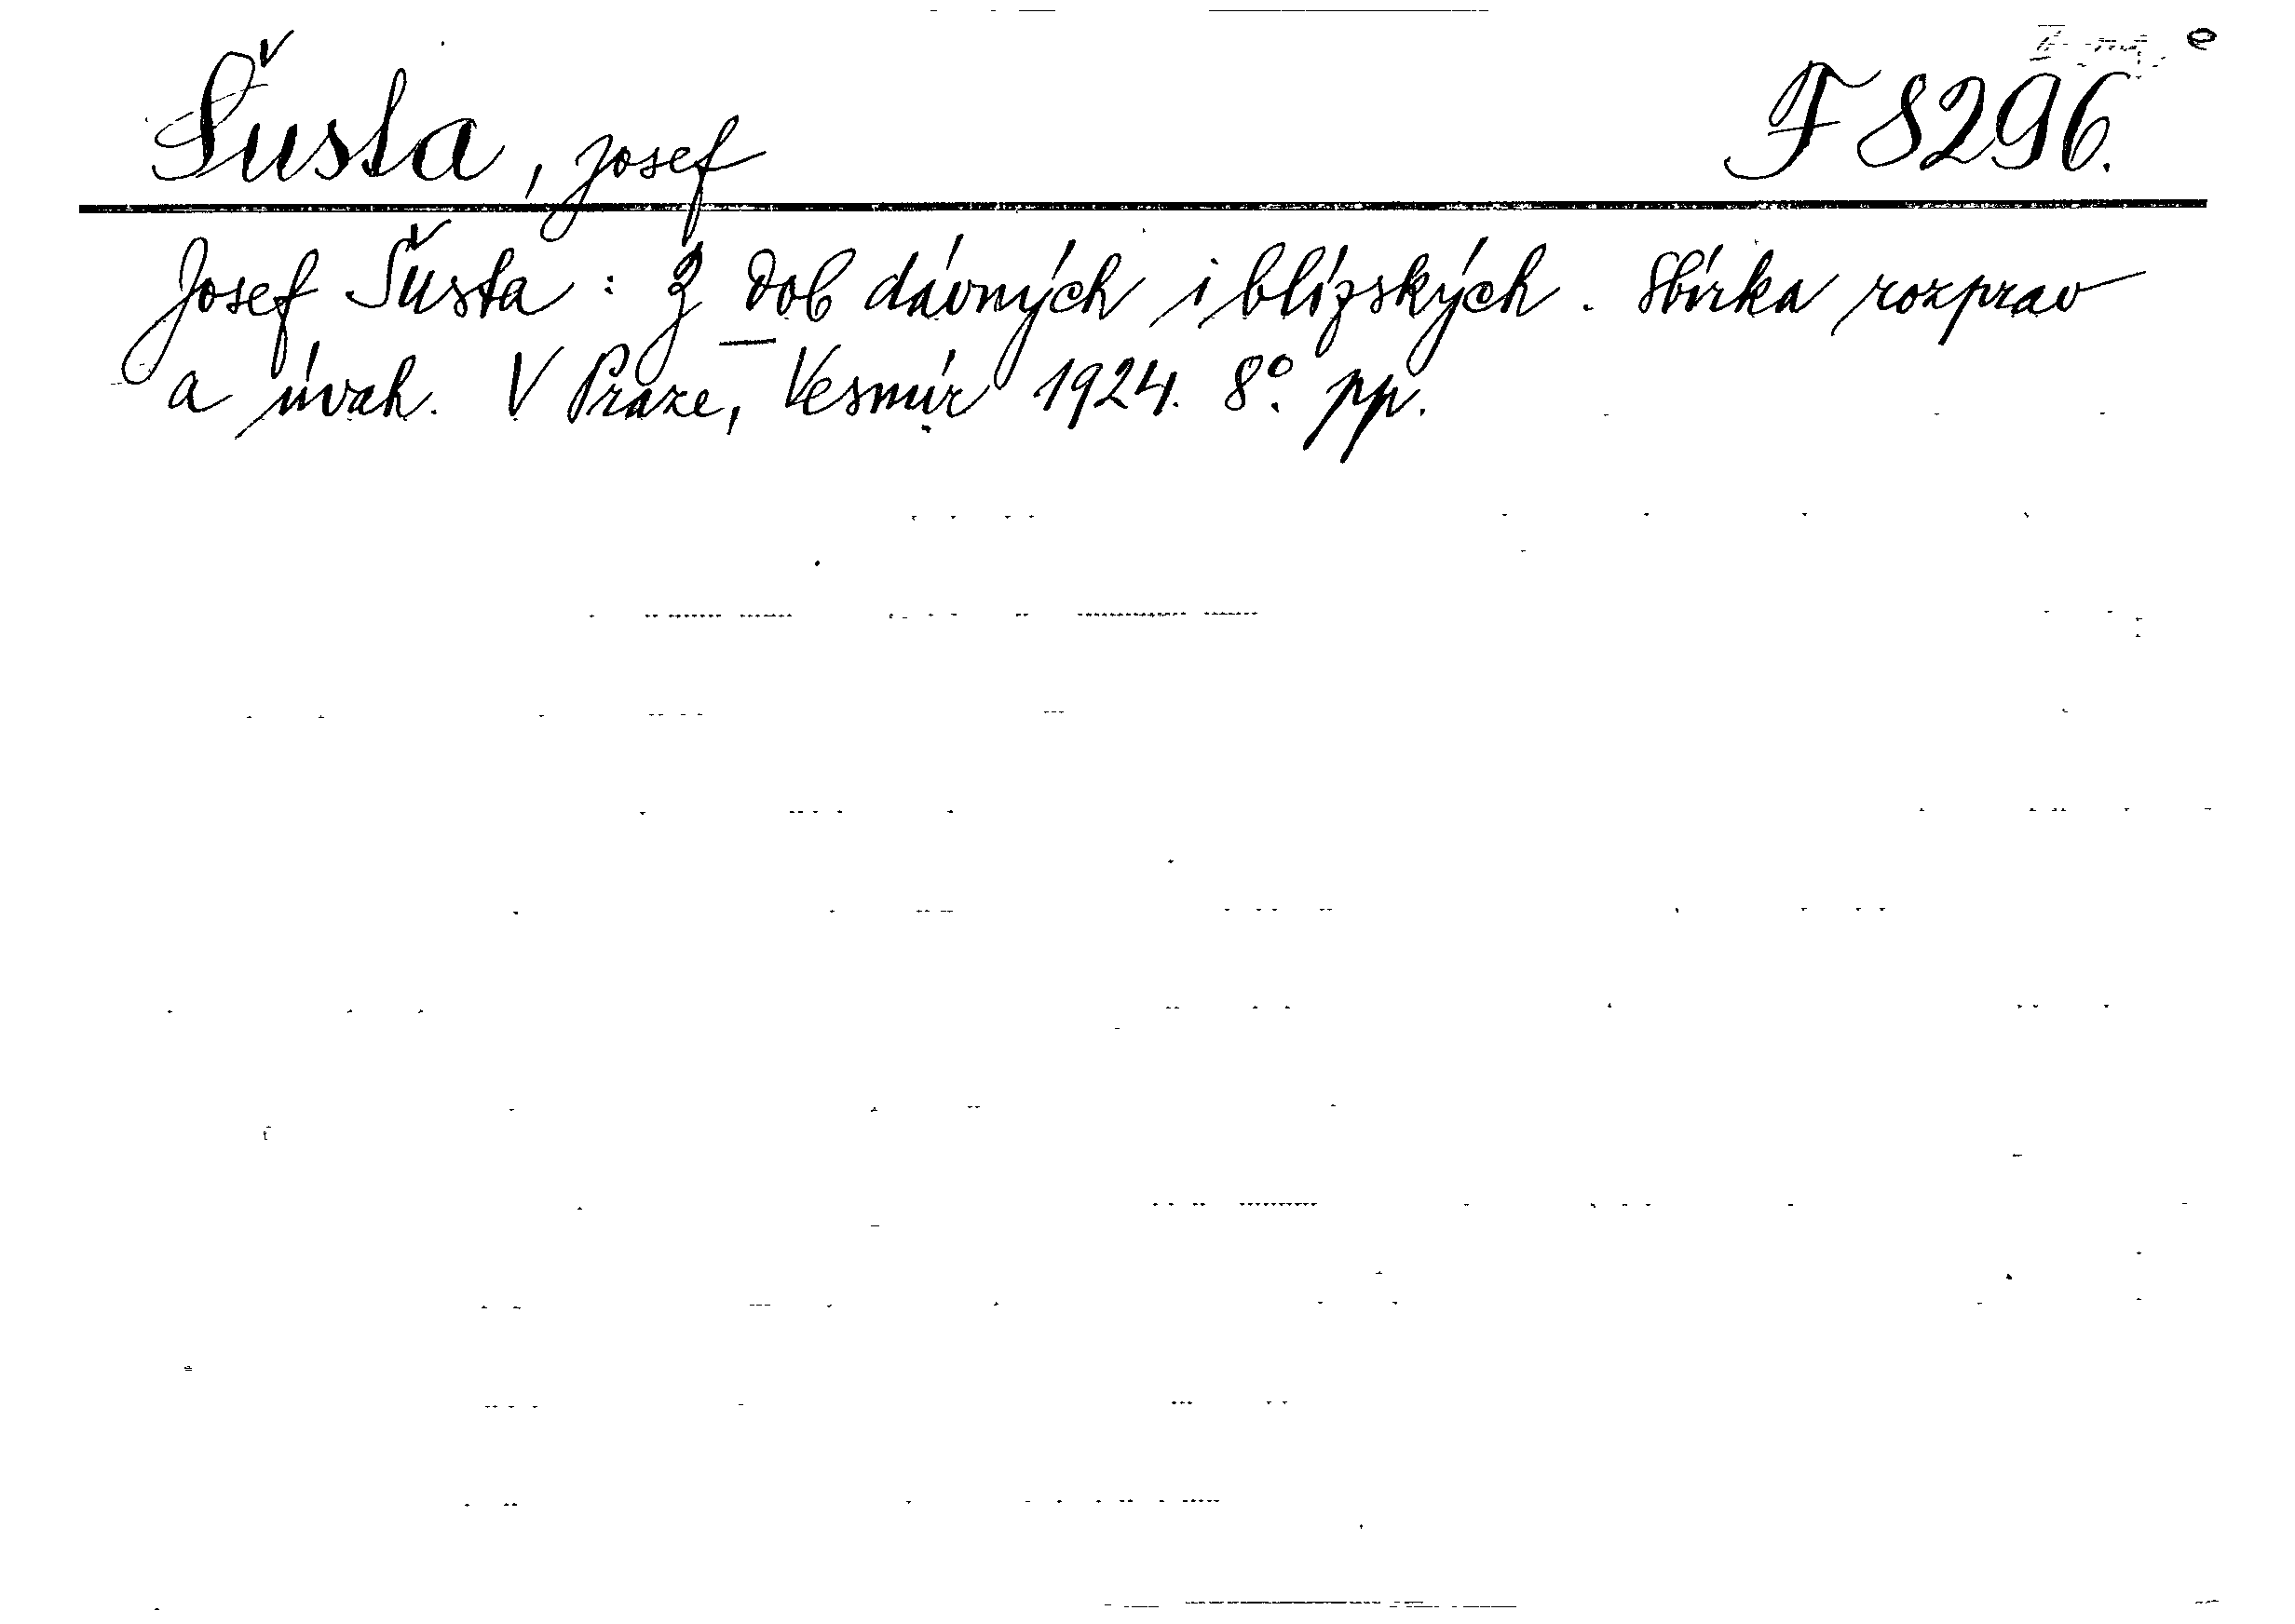 Šusta, Josef F 8296.
Josef Šusta: Z dob dávných i blízských. Sbírka rozprav
a úvah. V Praze, Vesmír 1924. 8°. pp.